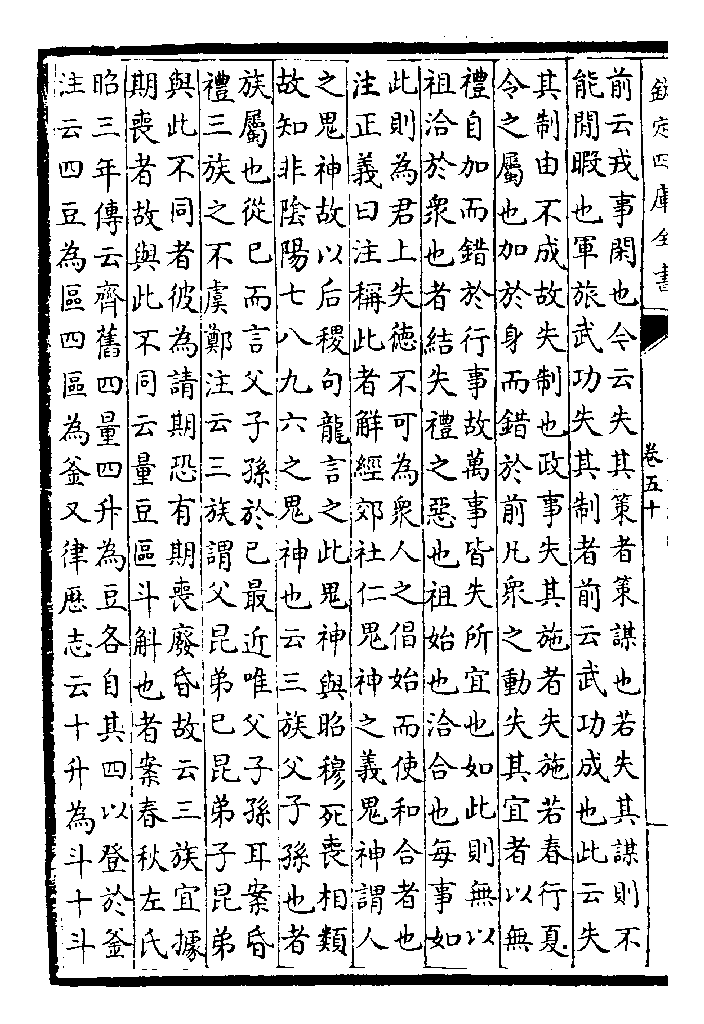 欽定四庫全書
卷五十
前云戎事閑也今云失其策者策謀也若失其謀則不
能閒暇也軍旅武功失其制者前云武功成也此云失
其制由不成故失制也政事失其施者失施若春行夏
令之屬也加於身而錯於前凡衆之動失其宜者以無
禮自加而錯於行事故萬事皆失所宜也如此則無以
祖洽於衆也者結失禮之惡也祖始也洽合也每事如
此則為君上失德不可為衆人之倡始而使和合者也
注正義曰注稱此者解經郊社仁鬼神之義鬼神謂人
之鬼神故以后稷句龍言之此鬼神與昭穆死喪相類
故知非陰陽七八九六之鬼神也云三族父子孫也者
族屬也從已而言父子孫於已最近唯父子孫耳案昏
禮三族之不虞鄭注云三族謂父昆弟已昆弟子昆弟
與此不同者彼為請期恐有期喪廢昏故云三族宜據
期喪者故與此不同云量豆區斗斛也者案春秋左氏
昭三年傳云齊舊四量四升為豆各自其四以登於釜
注云四豆為區四區為釜又律厯志云十升為斗十斗